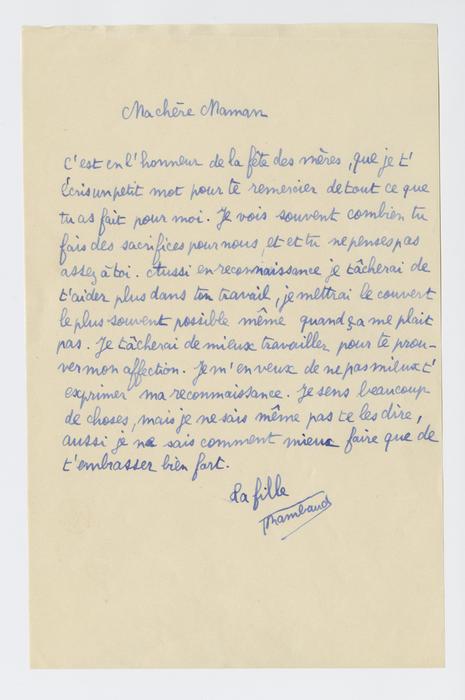 Ma chère Maman
C'est en l'honneur de la fête des mères, que je t'
écris un petit mot pour te remercier de tout ce que
tu as fait pour moi. Je vois souvent combien tu
fais des sacrifices pour nous, et et tu ne penses pas
assez à toi. Aussi en reconnaissance je tâcherai de
t'aider plus dans ton travail, je mettrai le couvert
le plus souvent possible même quand ça me plait
pas. Je tâcherai de mieux travailler pour te prou-
ver mon affection. Je m'en veux de ne pas mieux t'
exprimer ma reconnaissance. Je sens beaucoup
de choses, mais je ne sais même pas te les dire,
aussi je ne sais comment mieux faire que de
t'embrasser bien fort.
ta fille